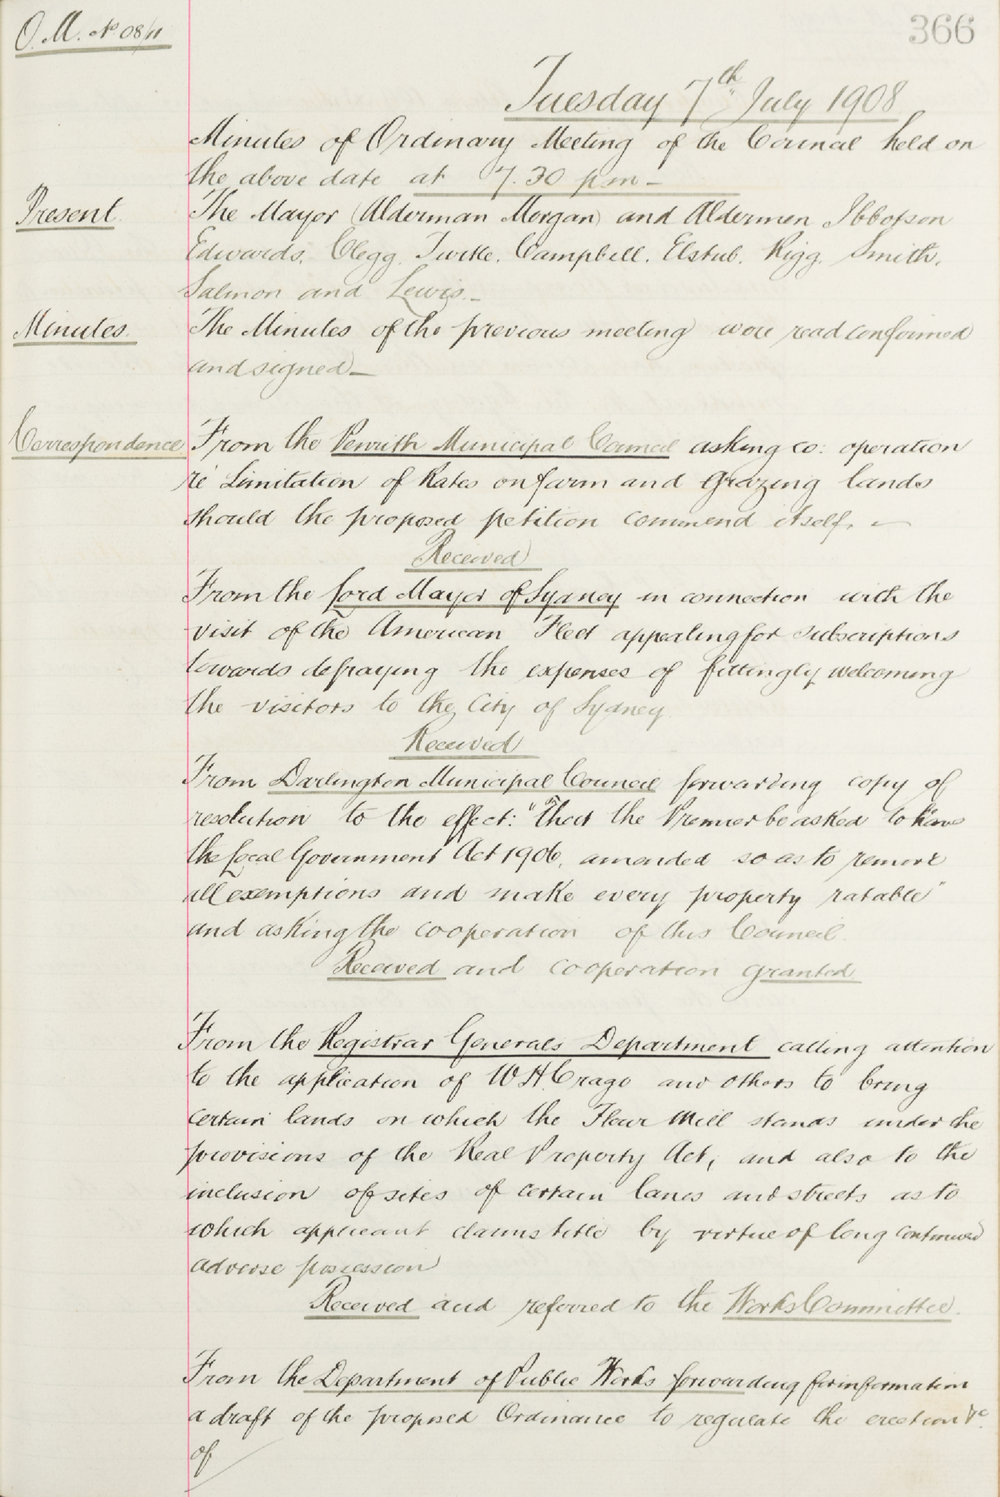 O.M. No 08/11
366
Tuesday 7th July 1908
Minutes of Ordinary Meeting of the Council held on
the above date at 7.30 p.m—
Present
The Mayor (Alderman Morgan) and Aldermen Ibbotson
Edwards. Clegg. Turtle. Campbell. Elstub. Rigg. Smith.
Salmon and Lewis.—
Minutes.
The Minutes of the previous meeting were read confirmed
and signed—
Correspondence
From the Penrith Municipal Council asking co: operation
re' Limitation of Rates on farm and grazing lands
should the proposed petition commend itself. —
Received
From the Lord Mayor of Sydney in connection with the
visit of the American Fleet appealing for subscriptions
towards defraying the expenses of fittingly welcoming
the visitors to the City of Sydney
Received
From Darlington Municipal Council forwarding copy of
resolution to the effect: "That the Premier be asked to have
the Local Government Act 1906, amended so as to remove
all exemptions and make every property ratable"
and asking the cooperation of this Council.
Received and cooperation granted
From the Registrar Generals Department calling attention
to the application of W H. Crago and others to bring
certain lands on which the Flour Mill stands under the
provisions of the Real Property Act, and also to the
inclusion of sites of certain lanes and streets as to
which applicant claims title by virtue of long continued
adverse possession
Received and referred to the Works Committee.
From the Department of Public Works forwarding for information
a draft of the proposed Ordinance to regulate the erection &c.
of